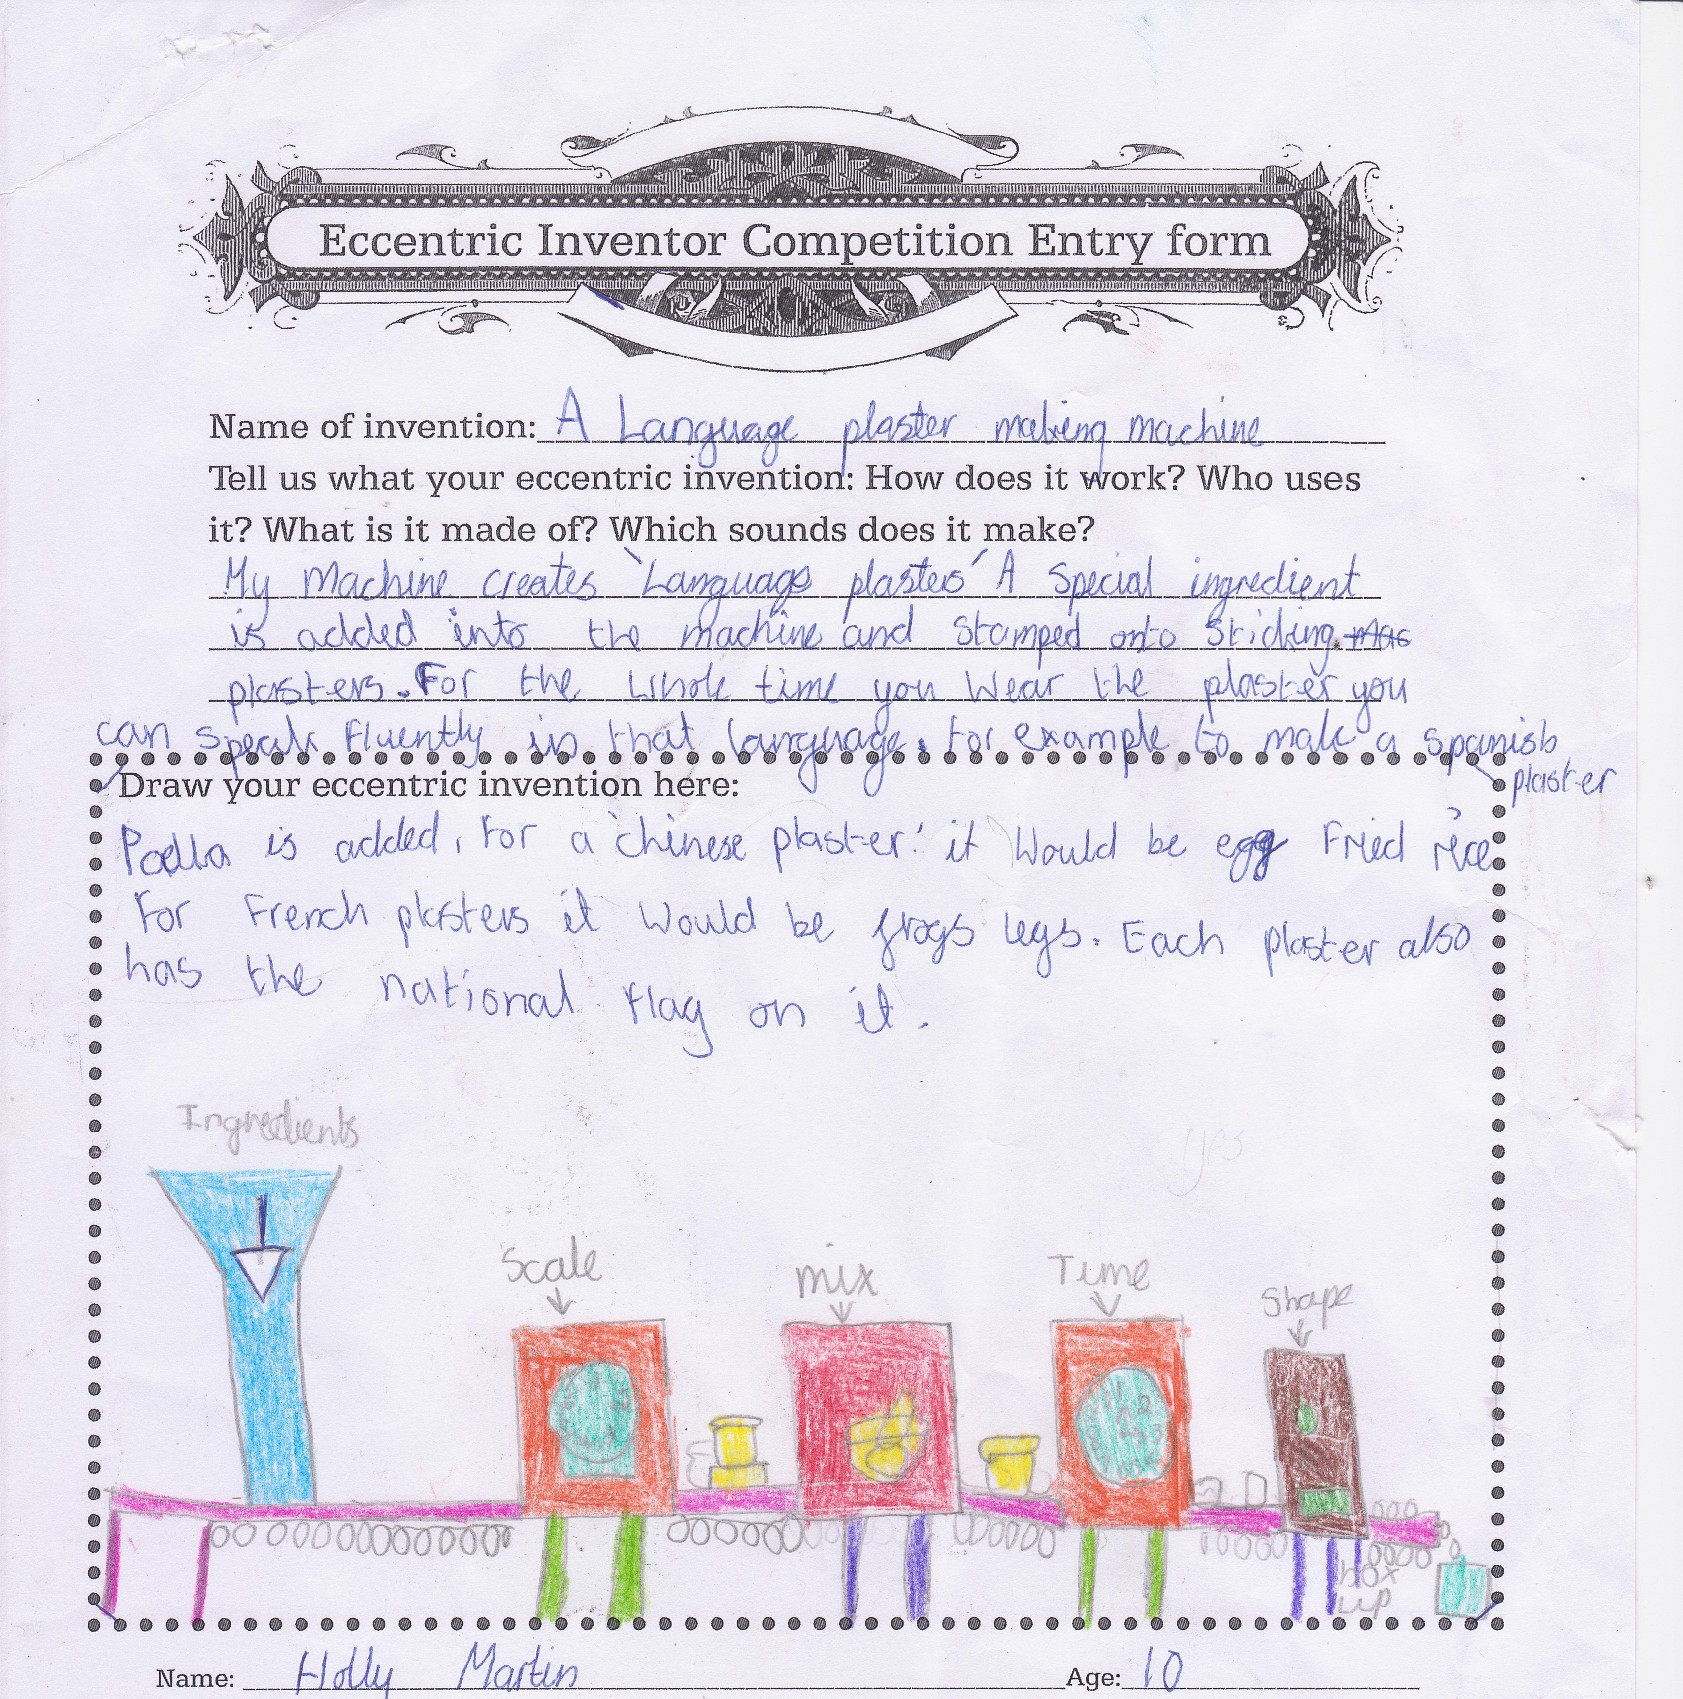 Eccentric Inventor Competition Entry form
Name of invention: A Language plaster making machine
Tell us what your eccentric invention: How does it work? Who uses
it? What is it made of? Which sounds does it make?
My Machine creates 'Language plasters' A special ingredient
is added into the machine and stamped onto sticking
plasters. For the whole time you wear the plaster you
can speak fluently in that language. For example to make a spanish
plaster
Draw your eccentric invention here:
Paella is added, For a 'chinese plaster' it would be egg fried rice
For French plasters it would be frogs legs. Each plaster also
has the national flag on it.
Ingredients
Scale
mix
Time
Shape
box
up
Name: Holly Martin Age: 10